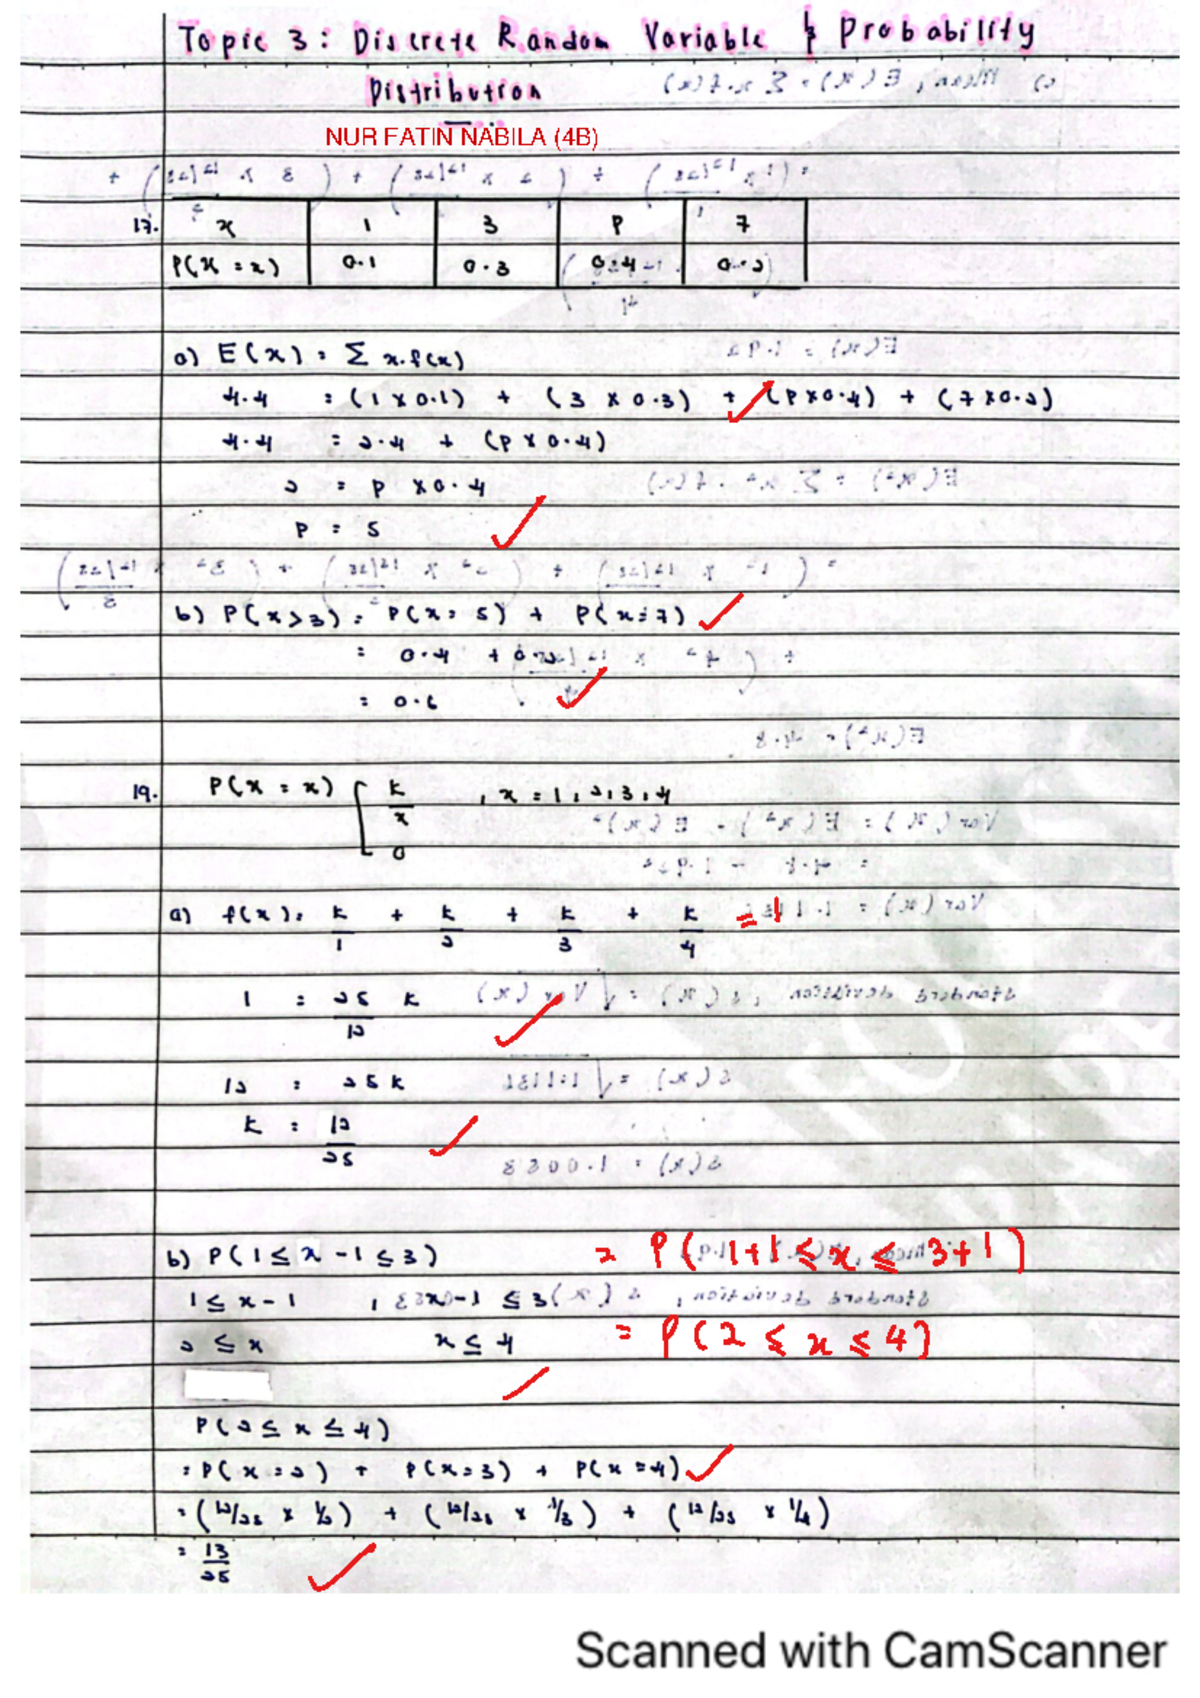 Topic 3: Discrete Random Variable & Probability
Distribution
NUR FATIN NABILA (4B)
17. x 1 3 P 7
P(X = x) 0.1 0.3 0.4 0.2
a) E(x) = Σ x.f(x)
4.4 = (1 x 0.1) + (3 x 0.3) + (P x 0.4) + (7 x 0.2)
4.4 = 2.4 + (P x 0.4)
2 = P x 0.4
P = 5
b) P(x > 3) = P(x = 5) + P(x = 7)
= 0.4 + 0.2
= 0.6
19. P(X = x) [ k/x , x = 1, 2, 3, 4
0
a) f(x) = k/1 + k/2 + k/3 + k/4 = 1
1 = 25/12 k
12 = 25k
k = 12/25
b) P(1 ≤ x - 1 ≤ 3) = P(1+1 ≤ x ≤ 3+1)
1 ≤ x - 1 , x - 1 ≤ 3
2 ≤ x x ≤ 4 = P(2 ≤ x ≤ 4)
P(2 ≤ x ≤ 4)
= P(x = 2) + P(x = 3) + P(x = 4)
= (12/25 x 1/2) + (12/25 x 1/3) + (12/25 x 1/4)
= 13/25
Scanned with CamScanner